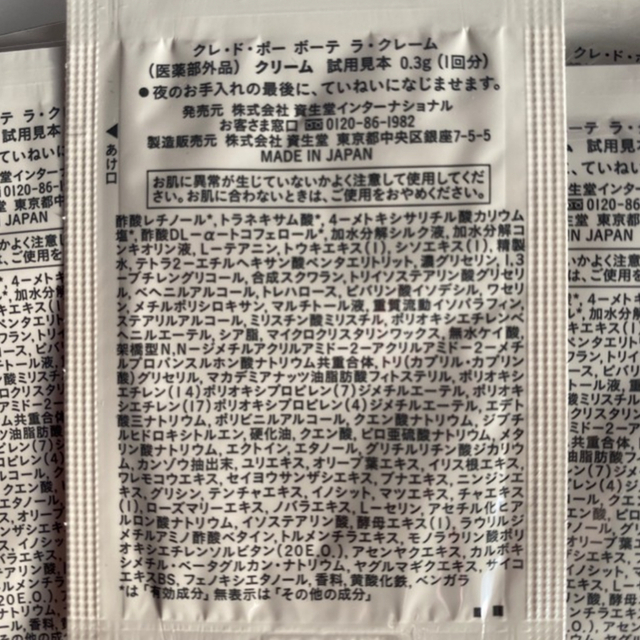 クレ・ド・ポー ボーテ ラ・クレーム
（医薬部外品） クリーム 試用見本 0.3g（1回分）
● 夜のお手入れの最後に、ていねいになじませます。
発売元 株式会社 資生堂インターナショナル
お客さま窓口 0120-86-1982
製造販売元 株式会社 資生堂 東京都中央区銀座7-5-5
MADE IN JAPAN
◀あけ口
お肌に異常が生じていないかよく注意して使用してくだ
さい。お肌に合わないときは、ご使用をおやめください。
酢酸レチノール*, トラネキサム酸*, 4-メトキシサリチル酸カリウム
塩*, 酢酸DL-α-トコフェロール*, 加水分解シルク液, 加水分解コ
ンキオリン液, L-テアニン, トウキエキス(1), シソエキス(1), 精製
水, テトラ2-エチルヘキサン酸ペンタエリトリット, 濃グリセリン, 1,3
-ブチレングリコール, 合成スクワラン, トリイソステアリン酸グリセリ
ル, ベヘニルアルコール, トレハロース, ピバリン酸イソデシル, ワセリ
ン, メチルポリシロキサン, マルチトール液, 重質流動イソパラフィン,
ステアリルアルコール, ミリスチン酸ミリスチル, ポリオキシエチレンベ
ヘニルエーテル, シア脂, マイクロクリスタリンワックス, 無水ケイ酸,
架橋型N,N-ジメチルアクリルアミド-2-アクリルアミド-2-メチ
ルプロパンスルホン酸ナトリウム共重合体, トリ(カプリル・カプリン
酸)グリセリル, マカデミアナッツ油脂肪酸フィトステリル, ポリオキシ
エチレン(14)ポリオキシプロピレン(7)ジメチルエーテル, ポリオキ
シエチレン(17)ポリオキシプロピレン(4)ジメチルエーテル, エデト
酸三ナトリウム, ポリビニルアルコール, クエン酸ナトリウム, ジブチ
ルヒドロキシトルエン, 硬化油, クエン酸, ピロ亜硫酸ナトリウム, メタ
リン酸ナトリウム, エクトイン, エタノール, グリチルリチン酸ジカリウ
ム, カンゾウ抽出末, ユリエキス, オリーブ葉エキス, イリス根エキス,
フレモコウエキス, セイヨウサンザシエキス, ブナエキス, ニンジンエキ
ス, グリシン, テンチャエキス, イノシット, マツエキス, チャエキス
(1), ローズマリーエキス, ノバラエキス, L-セリン, アセチル化ヒア
ルロン酸ナトリウム, イソステアリン酸, 酵母エキス(1), ラウリルジ
メチルアミノ酢酸ベタイン, トルメンチラエキス, モノラウリン酸ポリ
オキシエチレンソルビタン(20E.O.), アセンヤクエキス, カルボキ
シメチル・ベータグルカン・ナトリウム, ヤグルマギクエキス, サイコ
エキスBS, フェノキシエタノール, 香料, 黄酸化鉄, ベンガラ
*は「有効成分」無表示は「その他の成分」